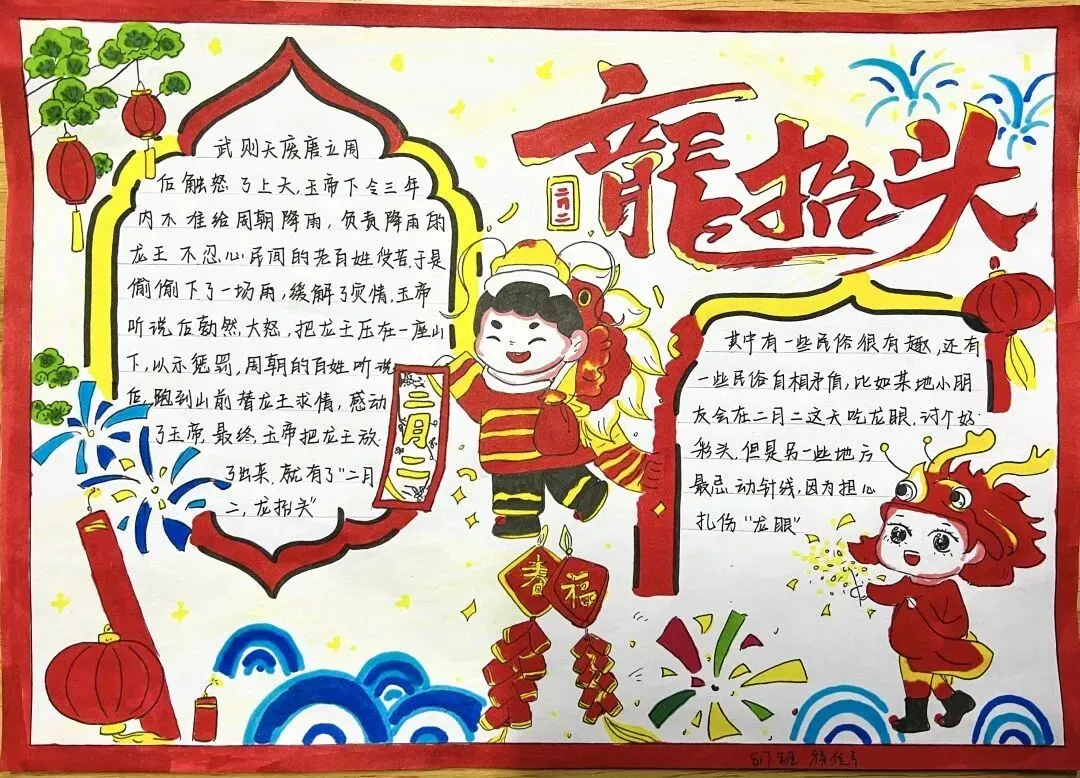 龍抬头
二月二
武则天废唐立周
后触怒了上天,玉帝下令三年
内不准给周朝降雨,负责降雨的
龙王不忍心民间的老百姓受苦于是
偷偷下了一场雨,缓解了灾情.玉帝
听说后勃然大怒,把龙王压在一座山
下,以示惩罚,周朝的百姓听说
后,跑到山前替龙王求情,感动
了玉帝,最终,玉帝把龙王放
了出来,就有了“二月
二,龙抬头”
二月二
其中有一些民俗很有趣,还有
一些民俗自相矛盾,比如某地小朋
友会在二月二这天吃龙眼,讨个好
彩头,但是另一些地方
最忌动针线,因为担心
扎伤“龙眼”
春
福
817班